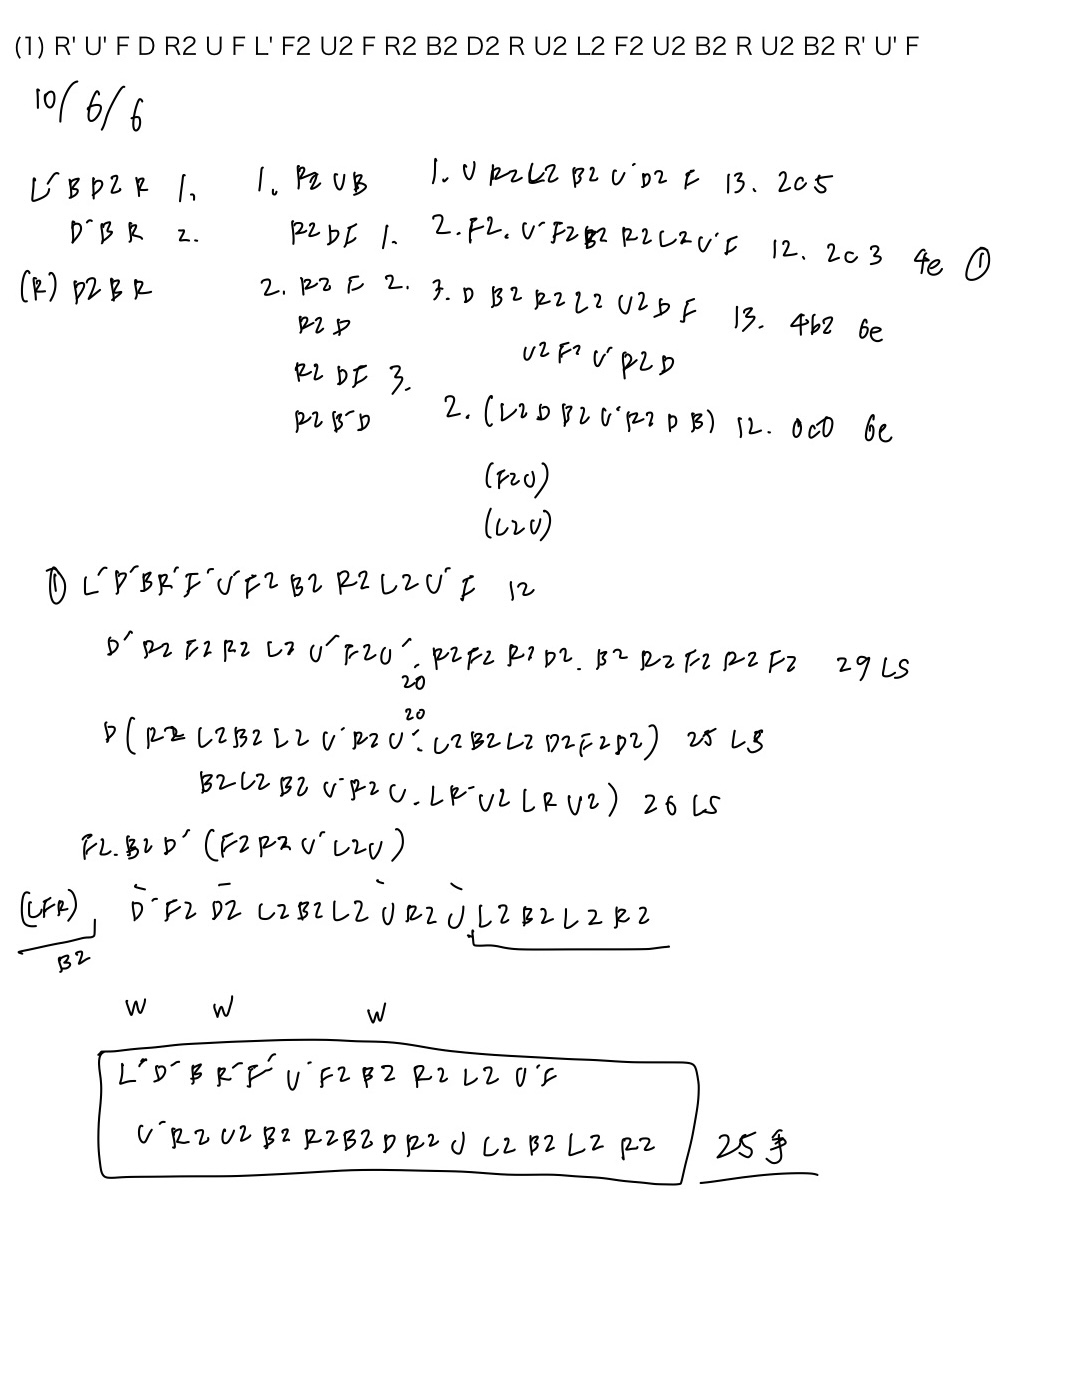 (1) R' U' F D R2 U F L' F2 U2 F R2 B2 D2 R U2 L2 F2 U2 B2 R U2 B2 R' U' F
10/6/6
L' B D2 R 1. 1. R2 U B 1. U R2 L2 B2 U' D2 F 13. 2c5
D' B R 2. R2 D F 1. 2. F2. U' F2 B2 R2 L2 U' F 12. 2c3 4e ①
(R) D2 B R 2. R2 F 2. 3. D B2 R2 L2 U2 D F 13. 4b2 6e
R2 D U2 F2 U' R2 D
R2 D F 3.
R2 B' D 2. (L2 D B2 U' R2 D B) 12. 0c0 6e
(F2 U)
(L2 U)
① L' D' B R' F' U' F2 B2 R2 L2 U' F 12
D' R2 F2 R2 L2 U' F2 U'. R2 F2 R2 D2. B2 R2 F2 R2 F2 29 LS
20
20
D (R2 L2 B2 L2 U' R2 U'. L2 B2 L2 D2 F2 D2) 25 LS
B2 L2 B2 U' R2 U. L R' U2 L R U2) 26 LS
F2. B2 D' (F2 R2 U' L2 U)
(LFR) D' F2 D2 L2 B2 L2 U R2 U. L2 B2 L2 R2
B2
w w w
L' D' B R' F' U' F2 B2 R2 L2 U' F
U' R2 U2 B2 R2 B2 D R2 U L2 B2 L2 R2 25手